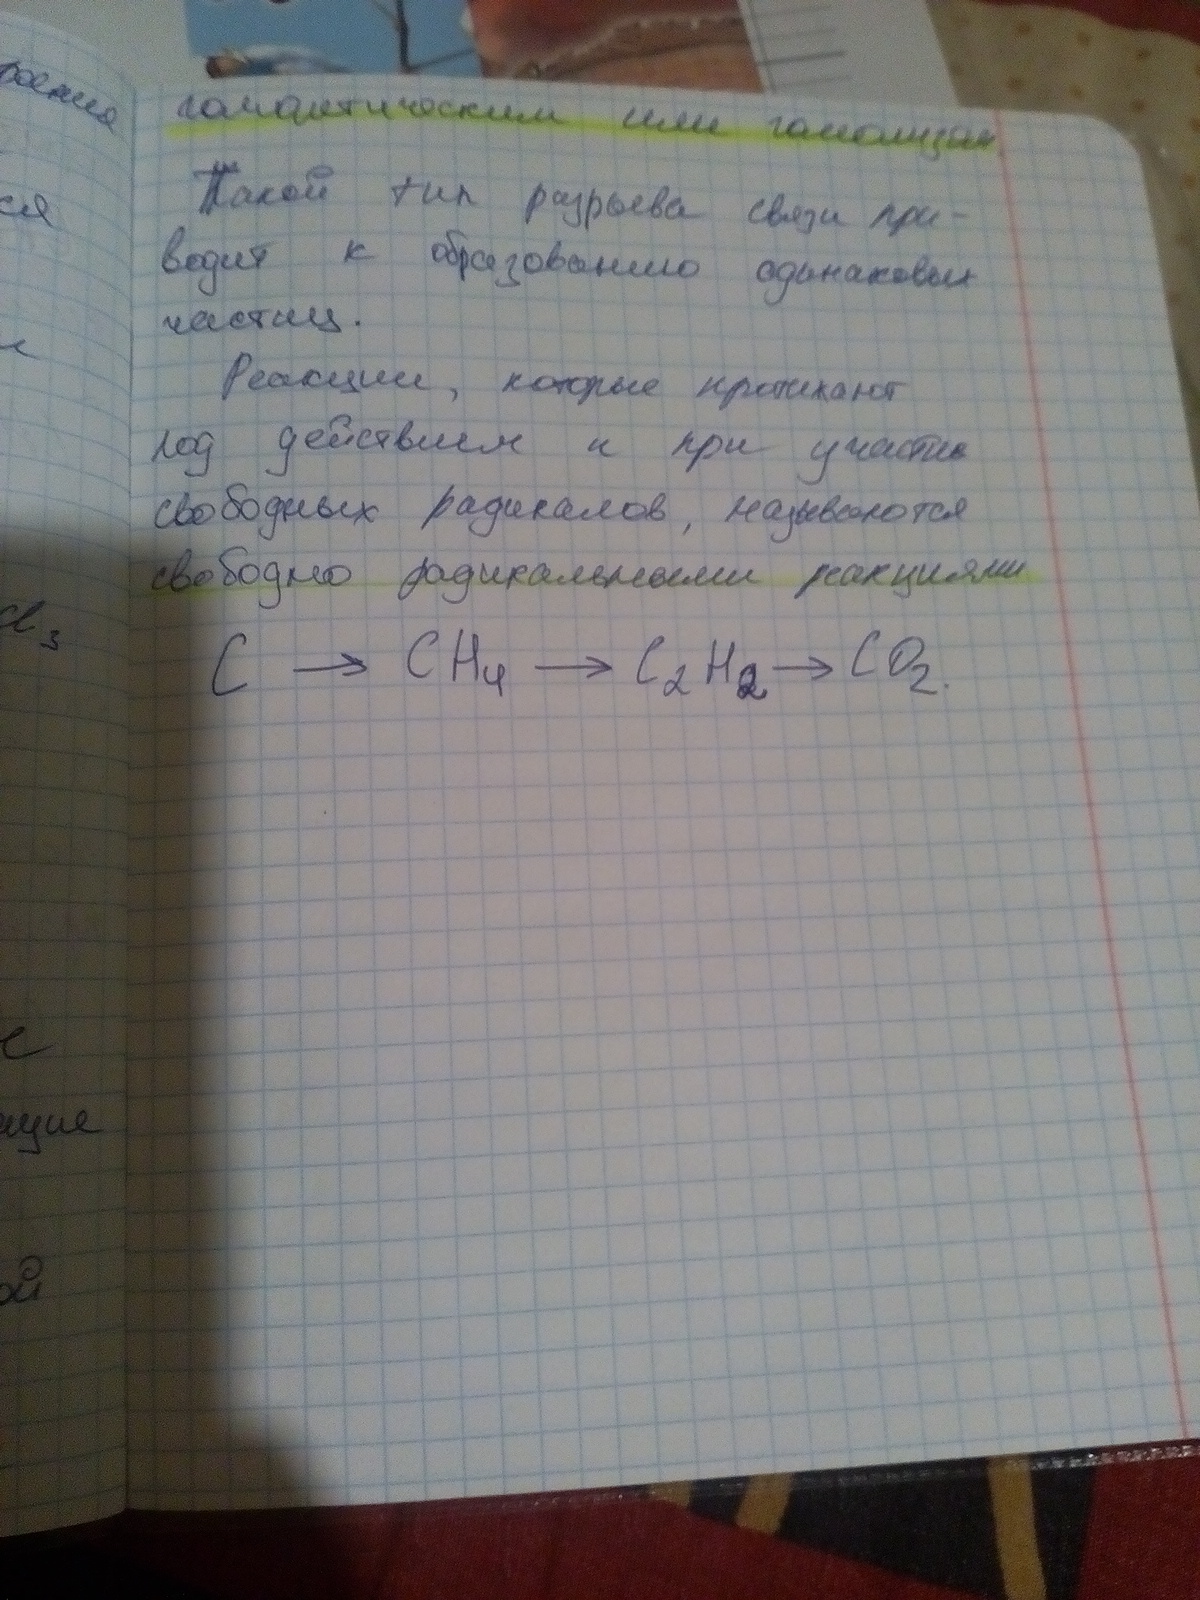 гомолитическим или гомолизом
Такой тип разрыва связи при-
водит к образованию одинаковых
частиц.
Реакции, которые протикают
под действием и при участии
свободных радикалов, называются
свободно радикальными реакциями
C → CH₄ → C₂H₂ → CO₂.
ся
Cl₃
ющие
ой